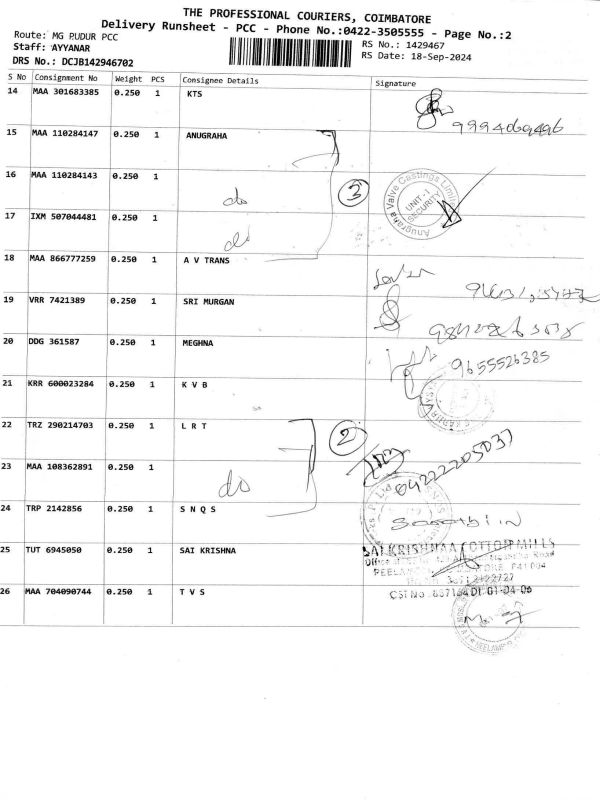 THE PROFESSIONAL COURIERS, COIMBATORE
Delivery Runsheet - PCC - Phone No.:0422-3505555 - Page No.:2
Route: MG PUDUR PCC
RS No.: 1429467
Staff: AYYANAR
RS Date: 18-Sep-2024
DRS No.: DCJB142946702
S No Consignment No Weight PCS Consignee Details Signature
14 MAA 301683385 0.250 1 KTS
9994069496
15 MAA 110284147 0.250 1 ANUGRAHA
16 MAA 110284143 0.250 1 do
3
Anugraha Valve Castings Limited
UNIT-1
SECURITY
17 IXM 507044481 0.250 1 do
18 MAA 866777259 0.250 1 A V TRANS
19 VRR 7421389 0.250 1 SRI MURGAN
20 DDG 361587 0.250 1 MEGHNA
9655526385
21 KRR 600023284 0.250 1 K V B
22 TRZ 290214703 0.250 1 L R T
2
04222205037
23 MAA 108362891 0.250 1 do
24 TRP 2142856 0.250 1 S N Q S
25 TUT 6945050 0.250 1 SAI KRISHNA
SAI KRISHNAA COTTON MILLS
26 MAA 704090744 0.250 1 T V S